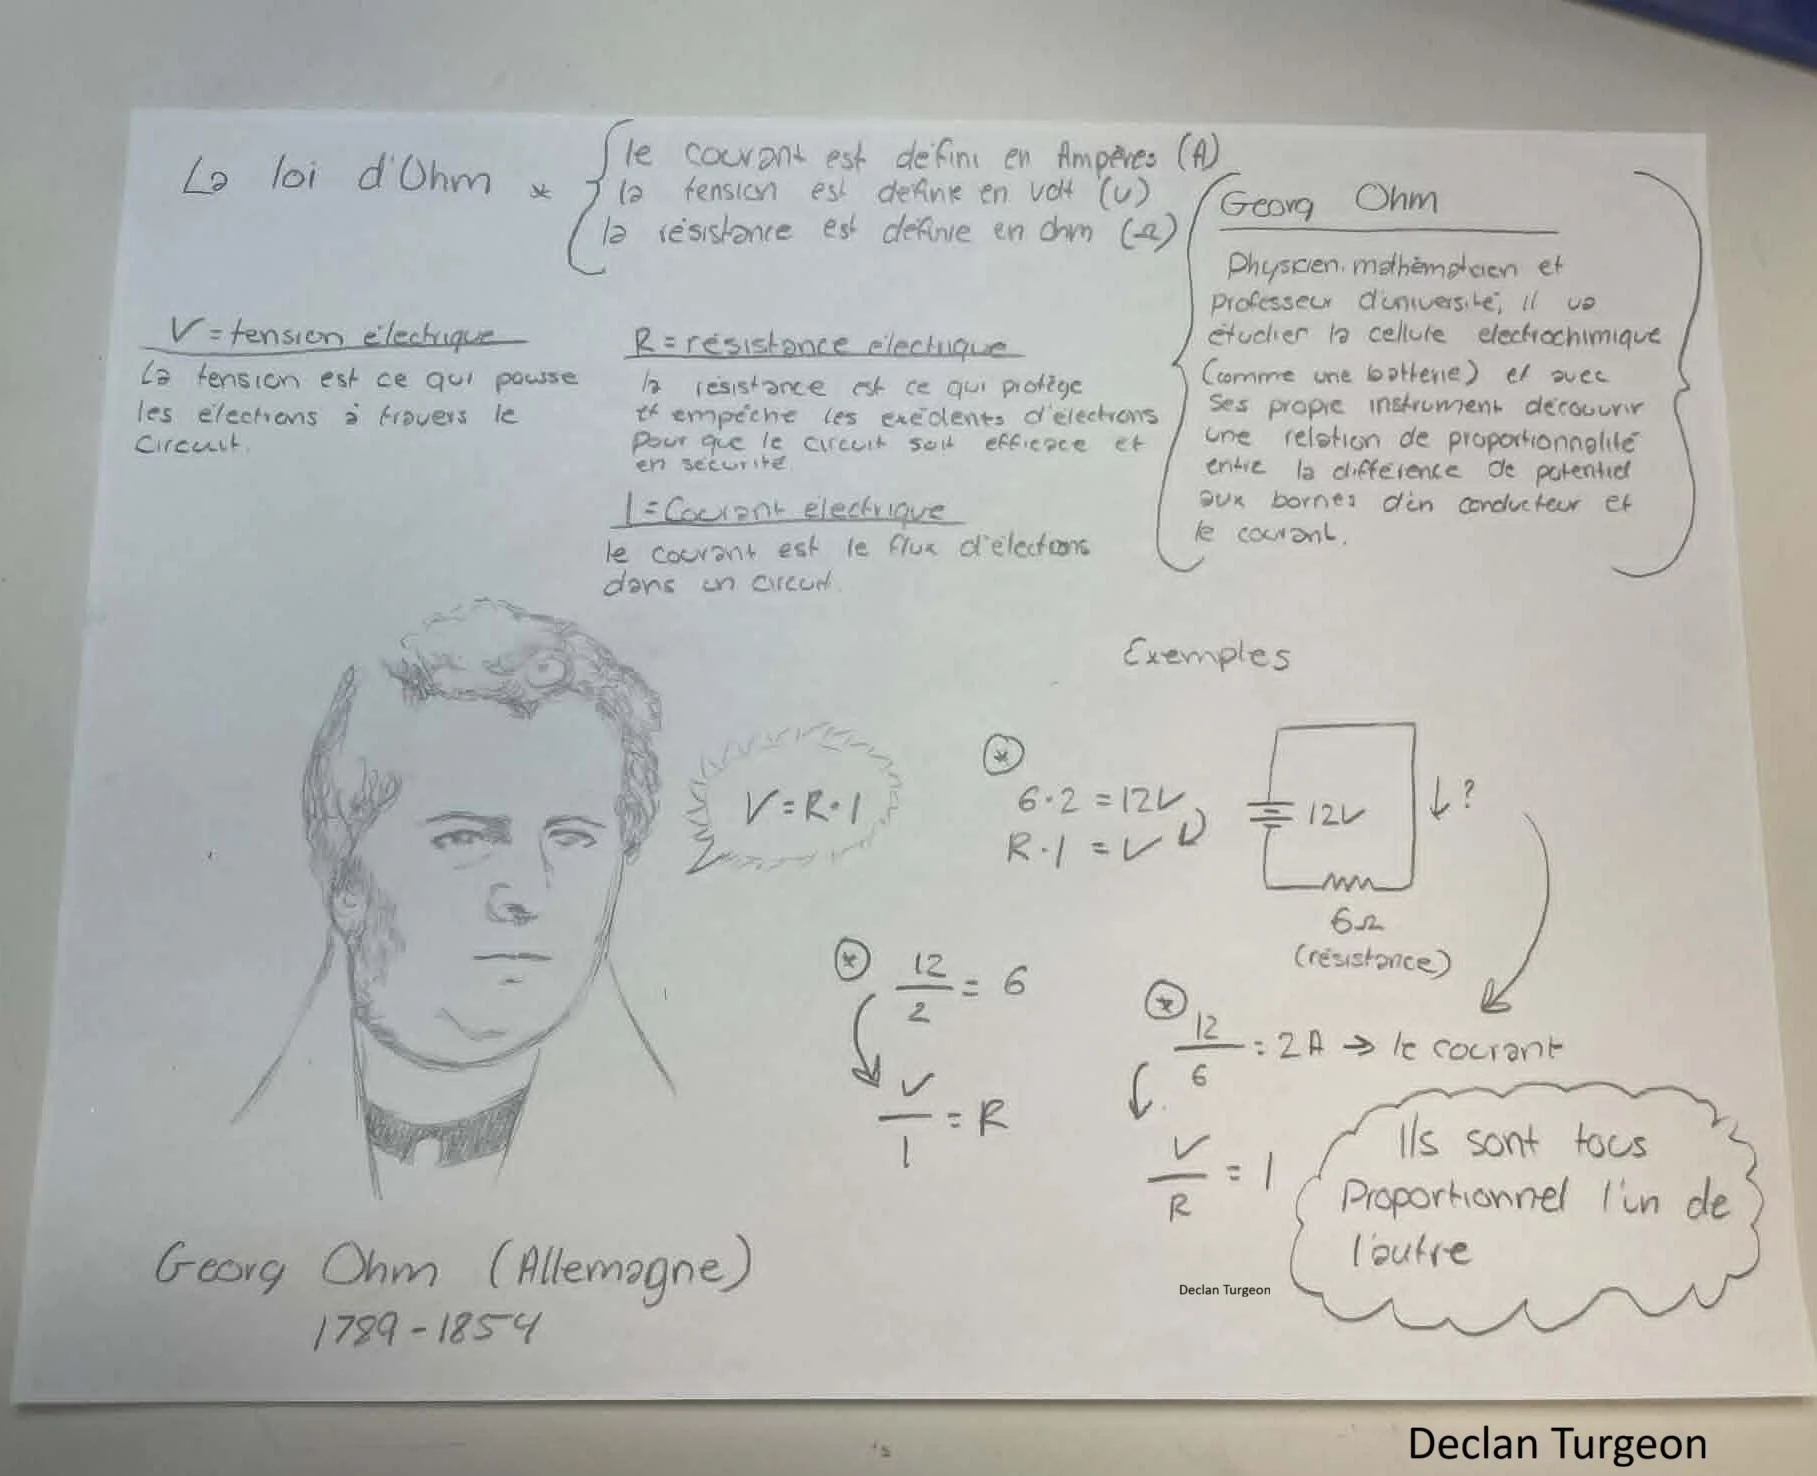 La loi d'Ohm *
le courant est défini en Ampères (A)
la tension est définie en volt (V)
la résistance est définie en ohm (Ω)
Georg Ohm
Physicien, mathématicien et
professeur d'université, il va
étudier la cellule electrochimique
(comme une batterie) et avec
ses propre instrument découvrir
une relation de proportionnalité
entre la différence de potentiel
aux bornes d'un conducteur et
le courant.
V = tension électrique
La tension est ce qui pousse
les électrons à travers le
circuit.
R = résistance électrique
la résistance est ce qui protège
et empêche les exédents d'électrons
pour que le circuit soit efficace et
en sécurité
I = Courant electrique
le courant est le flux d'électrons
dans un circuit.
Exemples
V = R · I
*
6 · 2 = 12V
R · I = V
12V
↓ ?
6Ω
(résistance)
*
12/2 = 6
V/I = R
*
12/6 = 2A → le courant
V/R = I
Ils sont tous
Proportionnel l'un de
l'autre
Georg Ohm (Allemagne)
1789 - 1854
Declan Turgeon
Declan Turgeon